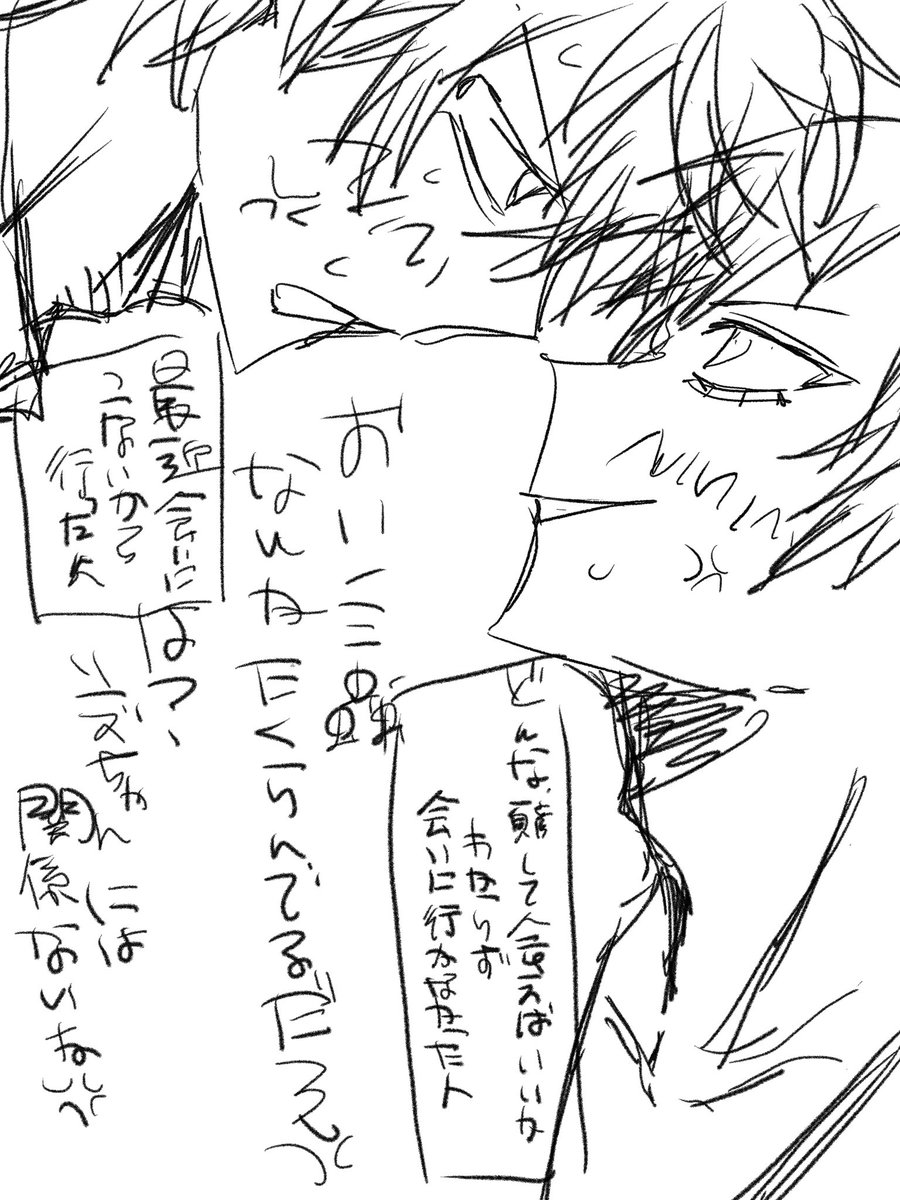 どんな顔して会えばいいか
わからず
会いに行かなかった人
おいノミ蟲
なんかたくらんでるだろ
最近会いに
こないから
行った人
はァ、
シズちゃんには
関係ないね